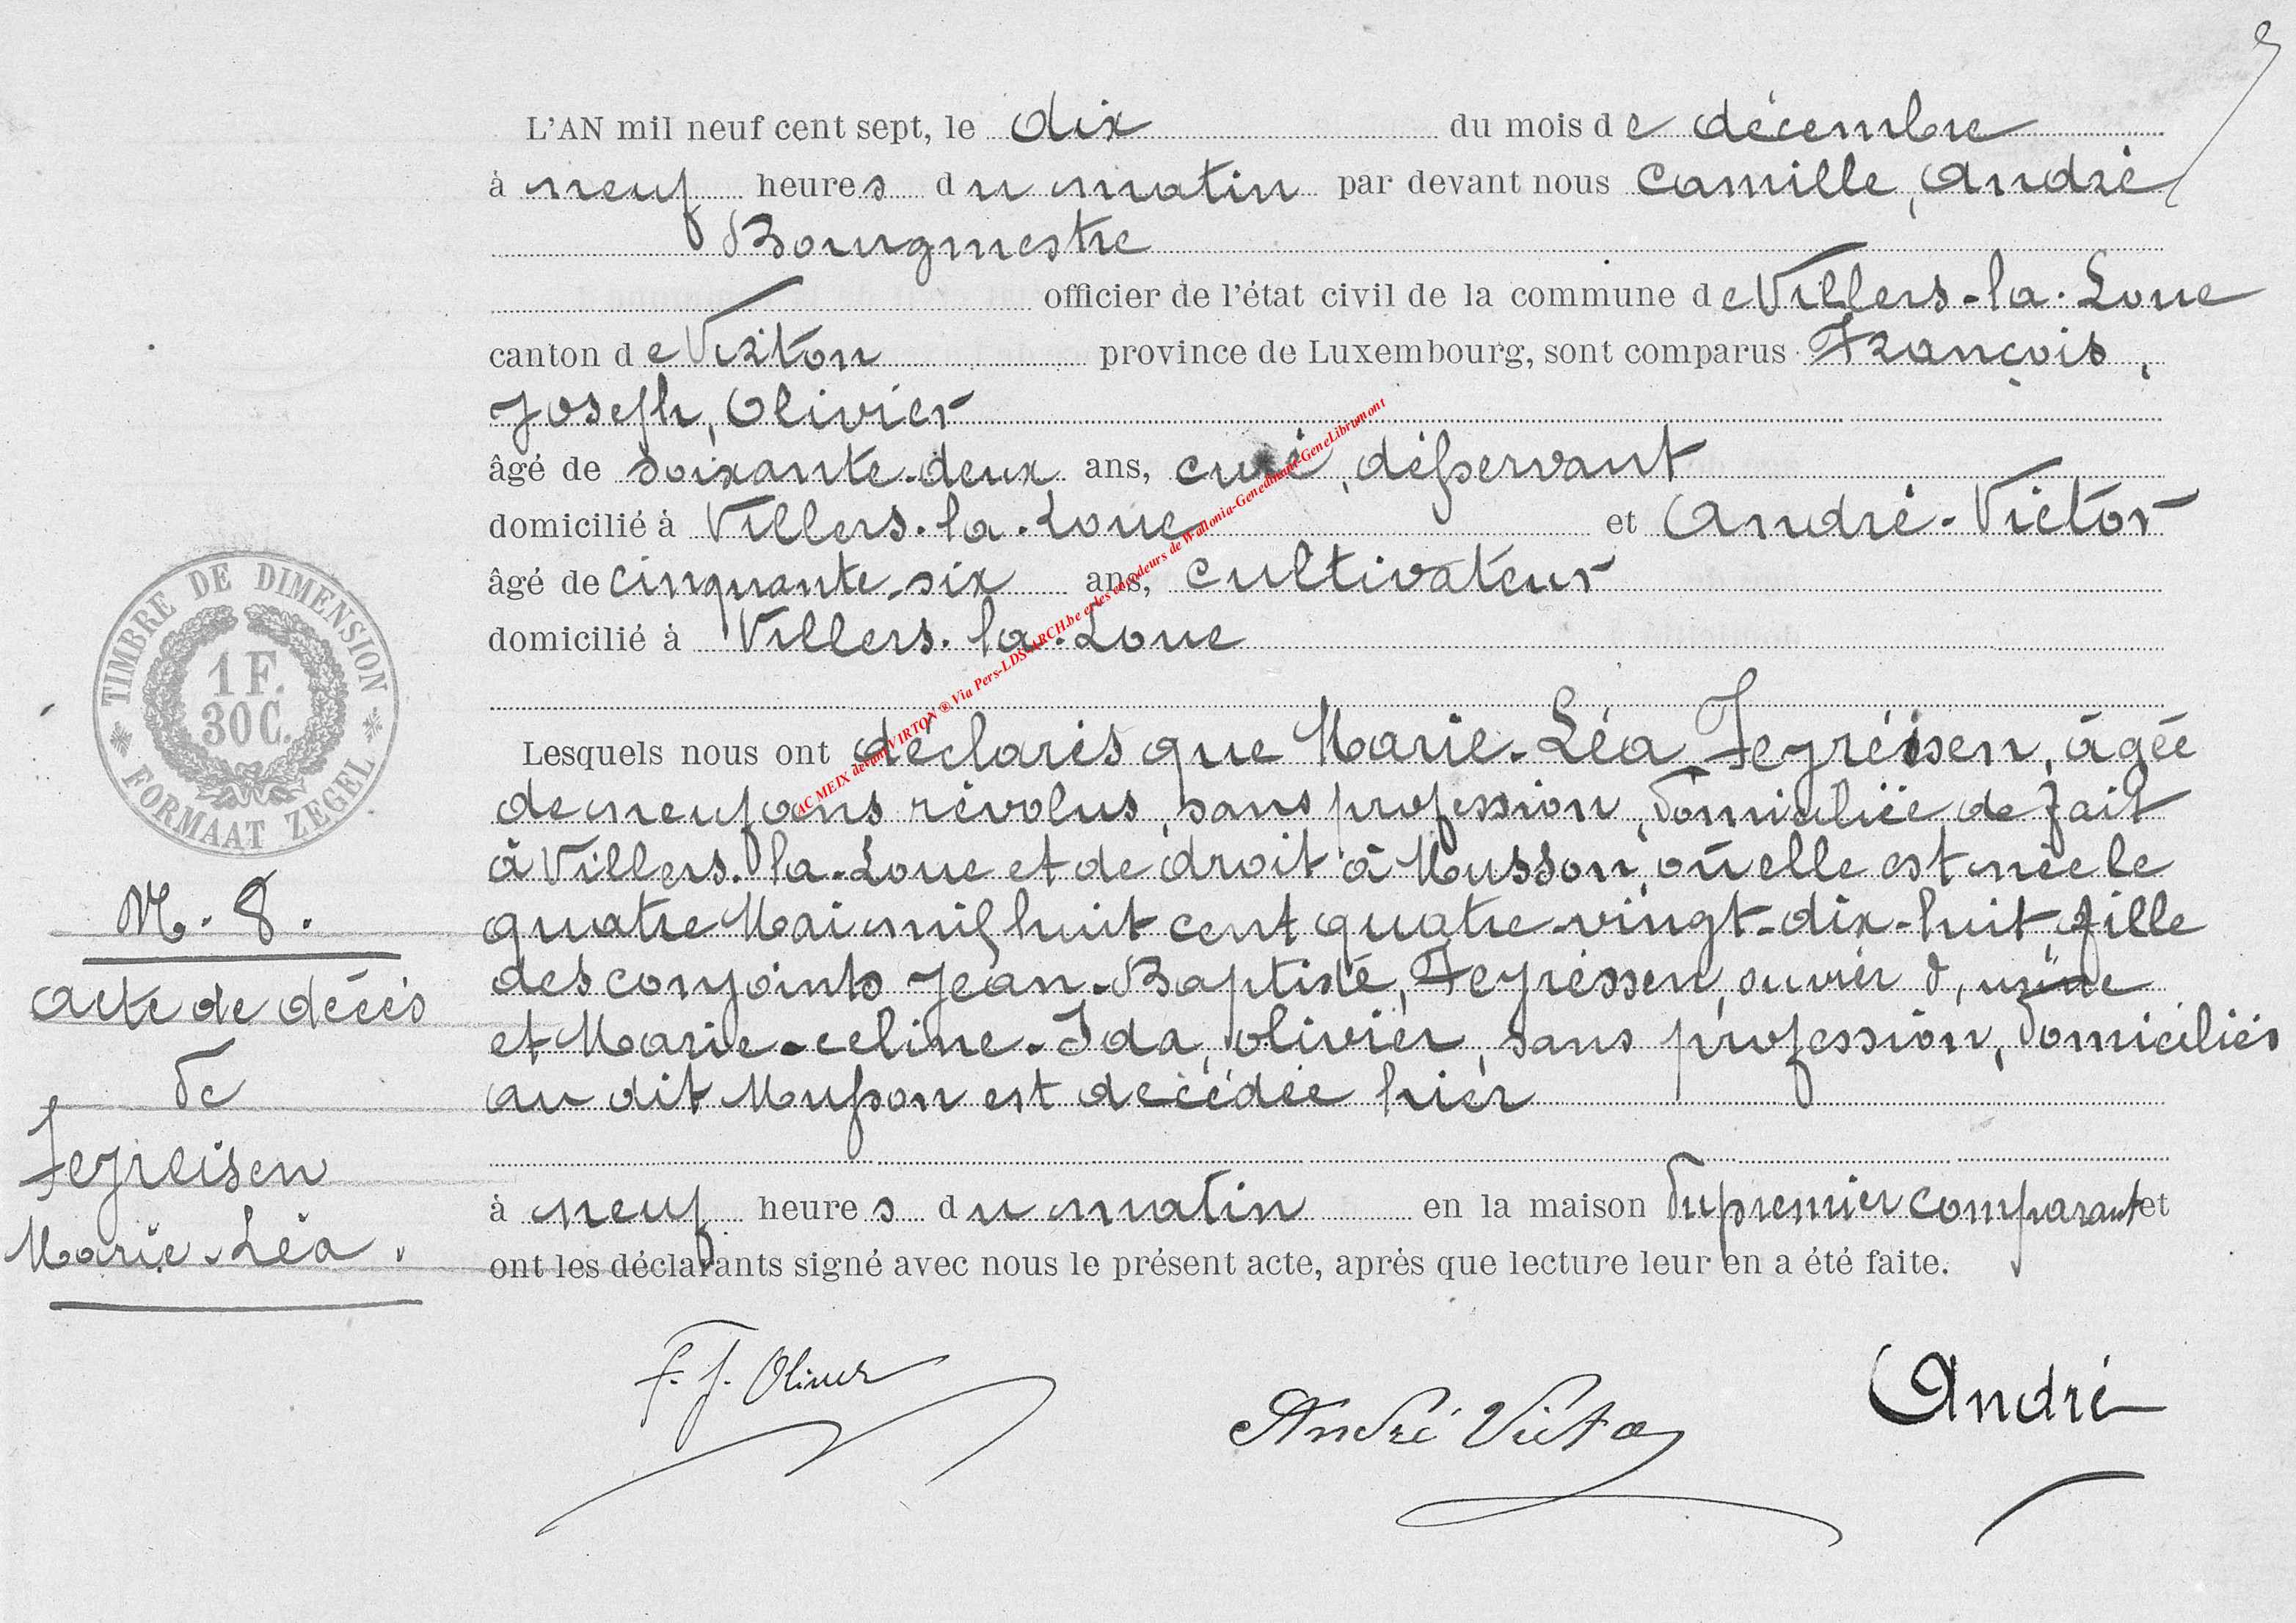 L'AN mil neuf cent sept, le dix du mois de décembre
à neuf heures du matin par devant nous Camille, André
Bourgmestre
officier de l'état civil de la commune de Villers-la-Loue
canton de Virton province de Luxembourg, sont comparus François,
Joseph, Olivier
âgé de soixante-deux ans, curé, desservant
domicilié à Villers-la-Loue et André-Victor
âgé de cinquante-six ans, cultivateur
domicilié à Villers-la-Loue
Lesquels nous ont déclarés que Marie-Léa Feyreisen, âgée
de neuf ans révolus, sans profession, domiciliée de fait
à Villers-la-Loue et de droit à Musson, où elle est née le
quatre Mai mil huit cent quatre-vingt-dix-huit, fille
des conjoints Jean-Baptiste, Feyressen, ouvrier d'usine
et Marie-celine-Ida, olivier, sans profession, domiciliés
au dit Musson est décédée hier
à neuf heures du matin en la maison du premier comparant et
ont les déclarants signé avec nous le présent acte, après que lecture leur en a été faite.
TIMBRE DE DIMENSION
1 F.
30 C.
FORMAAT ZEGEL
N. 8.
acte de décès
de
Feyreisen
Marie-Léa.
F. J. Olivier
André Victor
André
AC MEIX devant VIRTON ® Via Pers-LDS-ARCH.be et les encodeurs de Wallonia-Genedinant-GeneLibramont